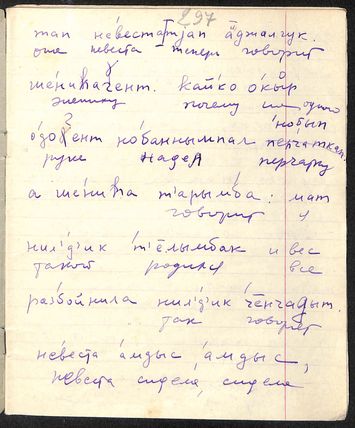 297
тап невеста тјап äџалчук.
она невеста теперь говорит
шенихачент. кайко окыр
жениху почему на одной
о́до́ɣент ко́баннымпал пе́рча́ткам.
нобып
руке надел перчатку
а ше́ниһа тары́мба: мат
говорит я
нил'д'ик т'ёлымбак и вес
такой родился все
разбойнила нил'д'ик чёнчадыт.
так говорят
невеста а́мдыс а́мдыс,
невеста сидела, сидела